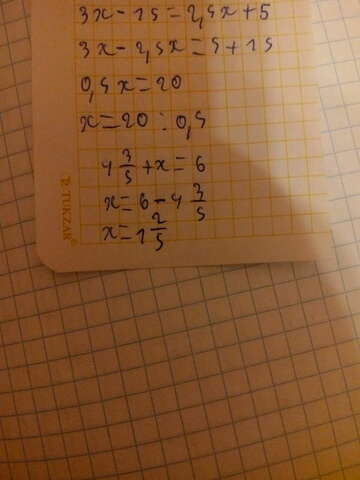 3x-15=2,5x+5
3x-2,5x=5+15
0,5x=20
x=20:0,5
4 3/5+x=6
x=6-4 3/5
x=1 2/5
P. TUKZAR®